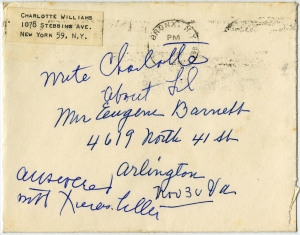 CHARLOTTE WILLIAMS
1078 STEBBINS AVE.
NEW YORK 59, N.Y.
BRONX, N.Y.
PM
Write Charlotte
about Lil
Mr Eugene Barnett
4619 North 41 st
Arlington
Va
answered
Nov 30
with Xmas letter